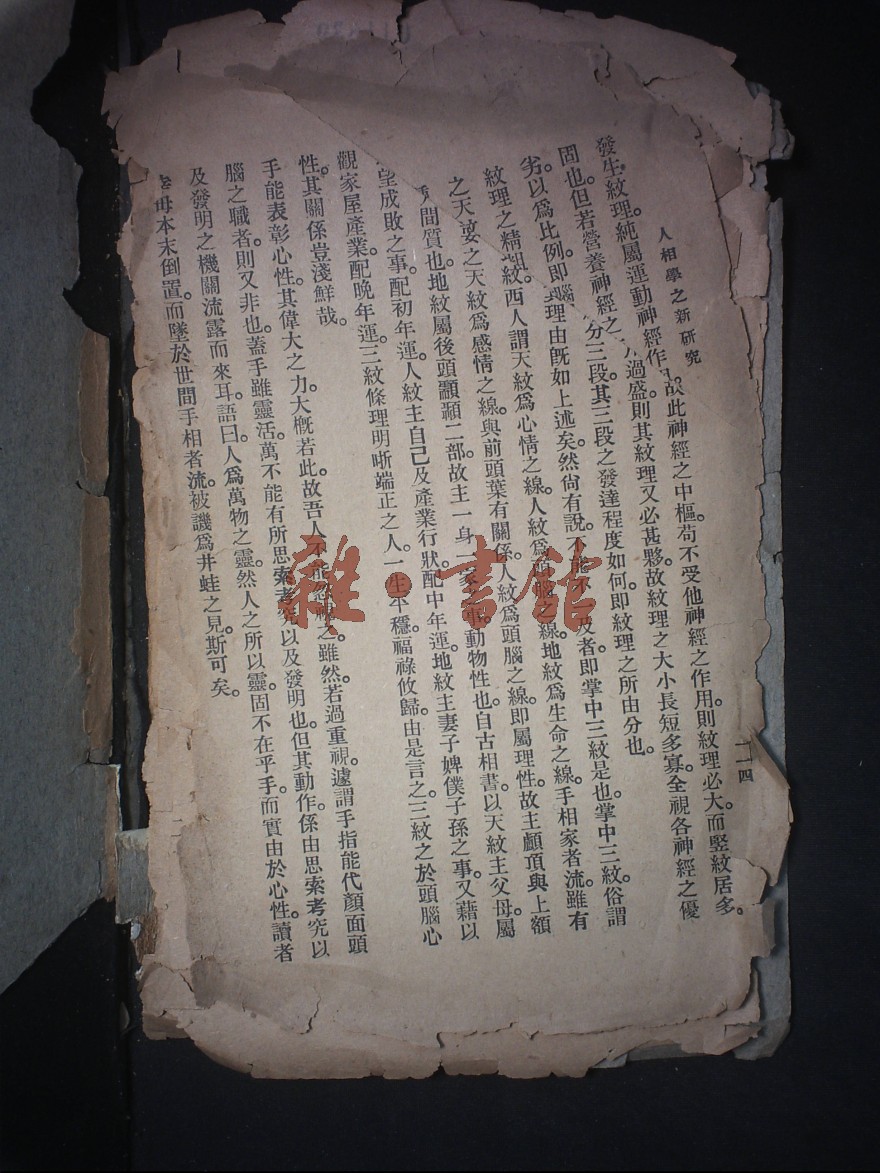 人相學之新研究
一一四
發生紋理。純屬運動神經作 故此神經之中樞。苟不受他神經之作用。則紋理必大。而竪紋居多。
固也。但若營養神經之 過盛。則其紋理又必甚夥。故紋理之大小長短多寡。全視各神經之優
劣。以爲比例。即 分三段。其三段之發達程度如何。即紋理之所由分也。
紋理之精粗 理由旣如上述矣。然尙有說 不能不 及者。即掌中三紋是也。掌中三紋。俗謂
之天 紋。西人謂天紋爲心情之線。人紋爲頭腦之線。地紋爲生命之線。手相家者流。雖有
之。天紋爲感情之線。與前頭葉有關係。人紋爲頭腦之線。即屬理性。故主顱頂與上額
間質也。地紋屬後頭顳顬二部。故主一身一家之事。動物性也。自古相書。以天紋主父母。屬
望成敗之事。配初年運。人紋主自己及產業行狀。配中年運。地紋主妻子婢僕子孫之事。又藉以
觀家屋產業。配晚年運。三紋條理明晰端正之人。一生平穩。福祿攸歸。由是言之。三紋之於頭腦心
性。其關係豈淺鮮哉。
手能表彰心性。其偉大之力。大槪若此。故吾人不能忽視之。雖然。若過重視。遽謂手指能代顏面頭
腦之職者。則又非也。蓋手雖靈活。萬不能有所思索考究。以及發明也。但其動作。係由思索考究以
及發明之機關流露而來耳。語曰。人爲萬物之靈。然人之所以靈。固不在乎手。而實由於心性。讀者
毋本末倒置。而墜於世間手相者流。被譏爲井蛙之見斯可矣。
雜·書館